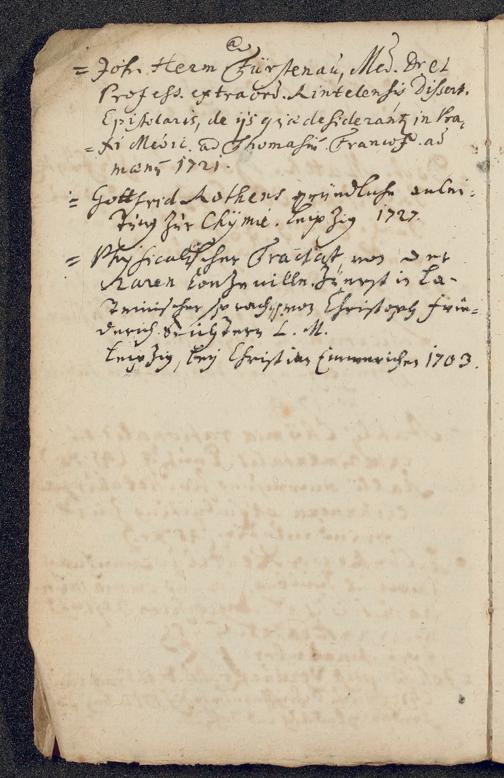 = Joh. Herm Fürstenau, Med. Dr et
Profess. extraord. Rintelensis Dissert.
Epistolaris, de ijs quæ desiderant in Pra,
= xi Medic. ad Thomasiū Francof. ad
mœnū 1721.
= Gottfrid Rothens gründliche anlei,
tung zür Chÿmie. Leipzig 1727.
= Physicalischer Tractat von der
Raren in La-
teinischer sprach von Christoph Frie=
derich Richtern L. M.
Leipzig, bey Christian Emmerichen 1703.